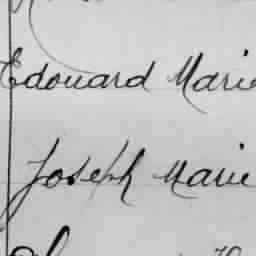 Edouard Marie
Joseph Marie